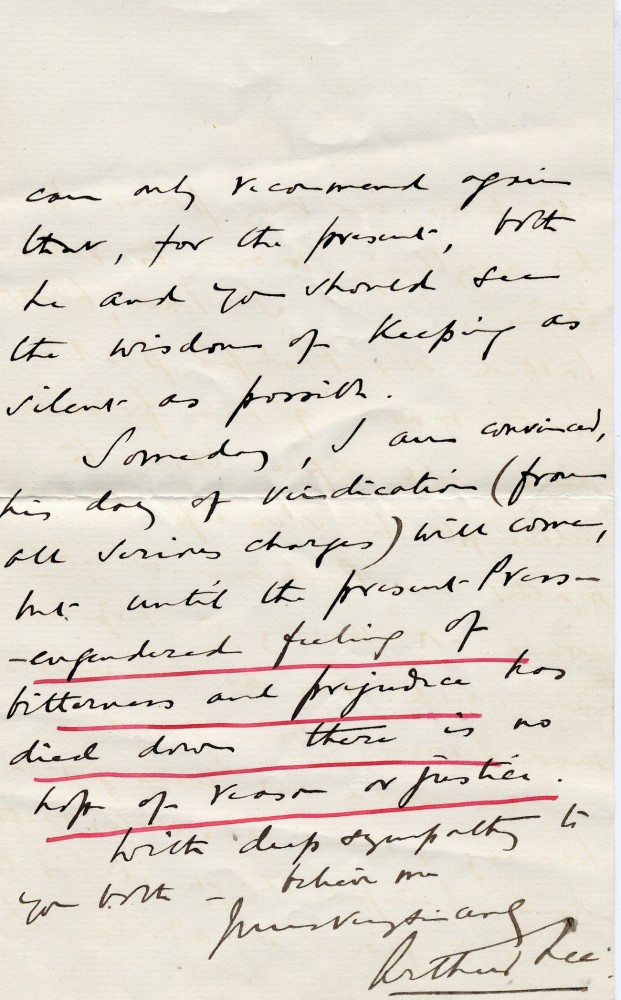 can only recommend again
that, for the present, both
he and you should see
the wisdom of Keeping as
silent as possible.
Someday, I am convinced,
his day of vindication (from
all serious charges) will come,
but until the present Press-
-engendered feeling of
bitterness and prejudice has
died down there is no
hope of reason or justice.
With deep sympathy to
you both - believe me
Yours very sincerely
Arthur Lee.